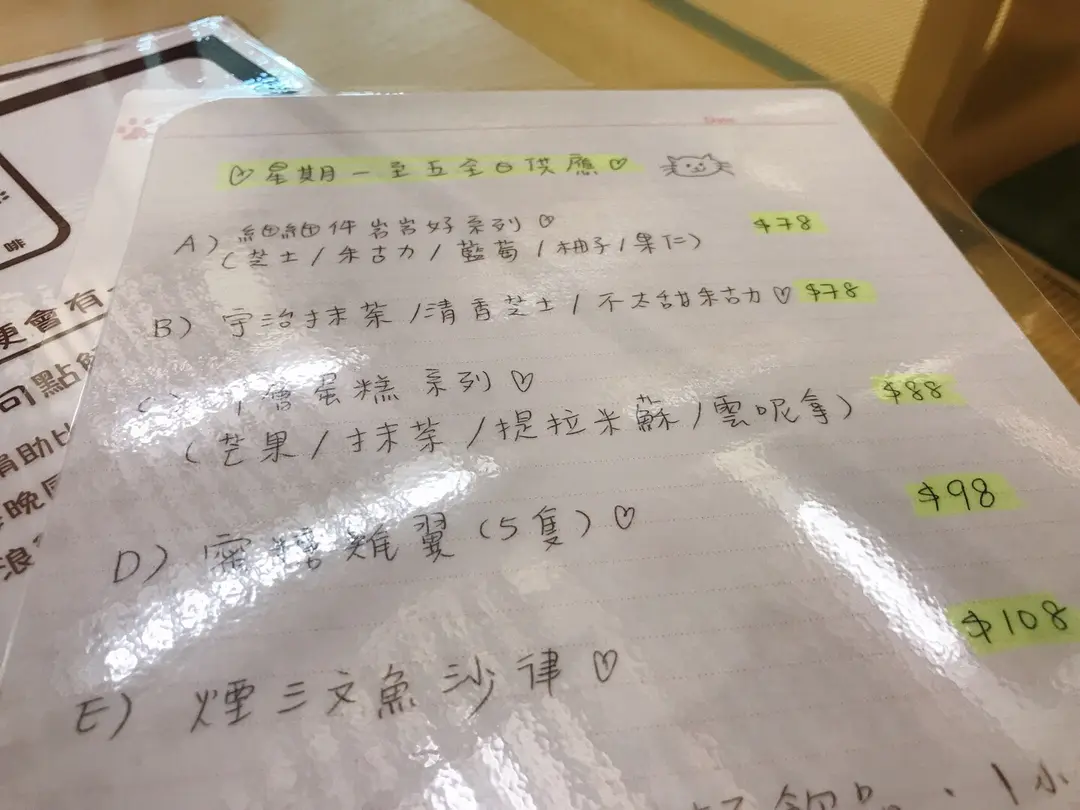 星期一至五全日供應
A) 細細件岩岩好系列 $78
(芝士/朱古力/藍莓/柚子/果仁)
B) 宇治抹茶/清香芝士/不太甜朱古力 $78
C) 千層蛋糕系列 $88
(芒果/抹茶/提拉米蘇/雲呢拿)
D) 蜜糖雞翼(5隻) $98
E) 煙三文魚沙律 $108
啡
更會有
司點
捐助
晚
浪